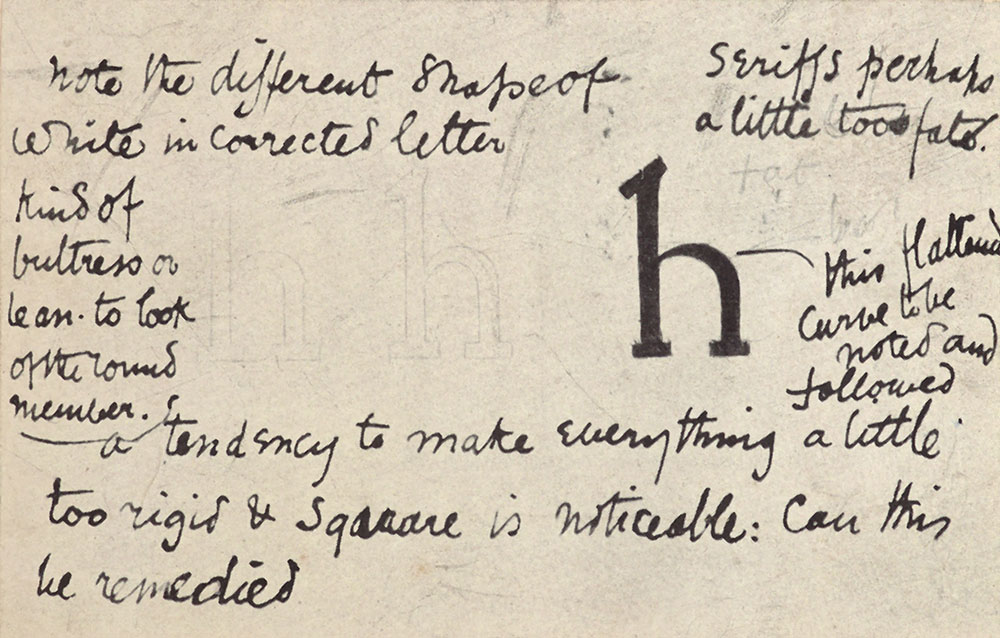 note the different shape of
white in corrected letter
Seriffs perhaps
a little too fat.
kind of
buttress or
lean-to look
of the round
member.
h
this flattened
curve to be
noted and
followed
a tendency to make everything a little
too rigid & square is noticeable: Can this
be remedied